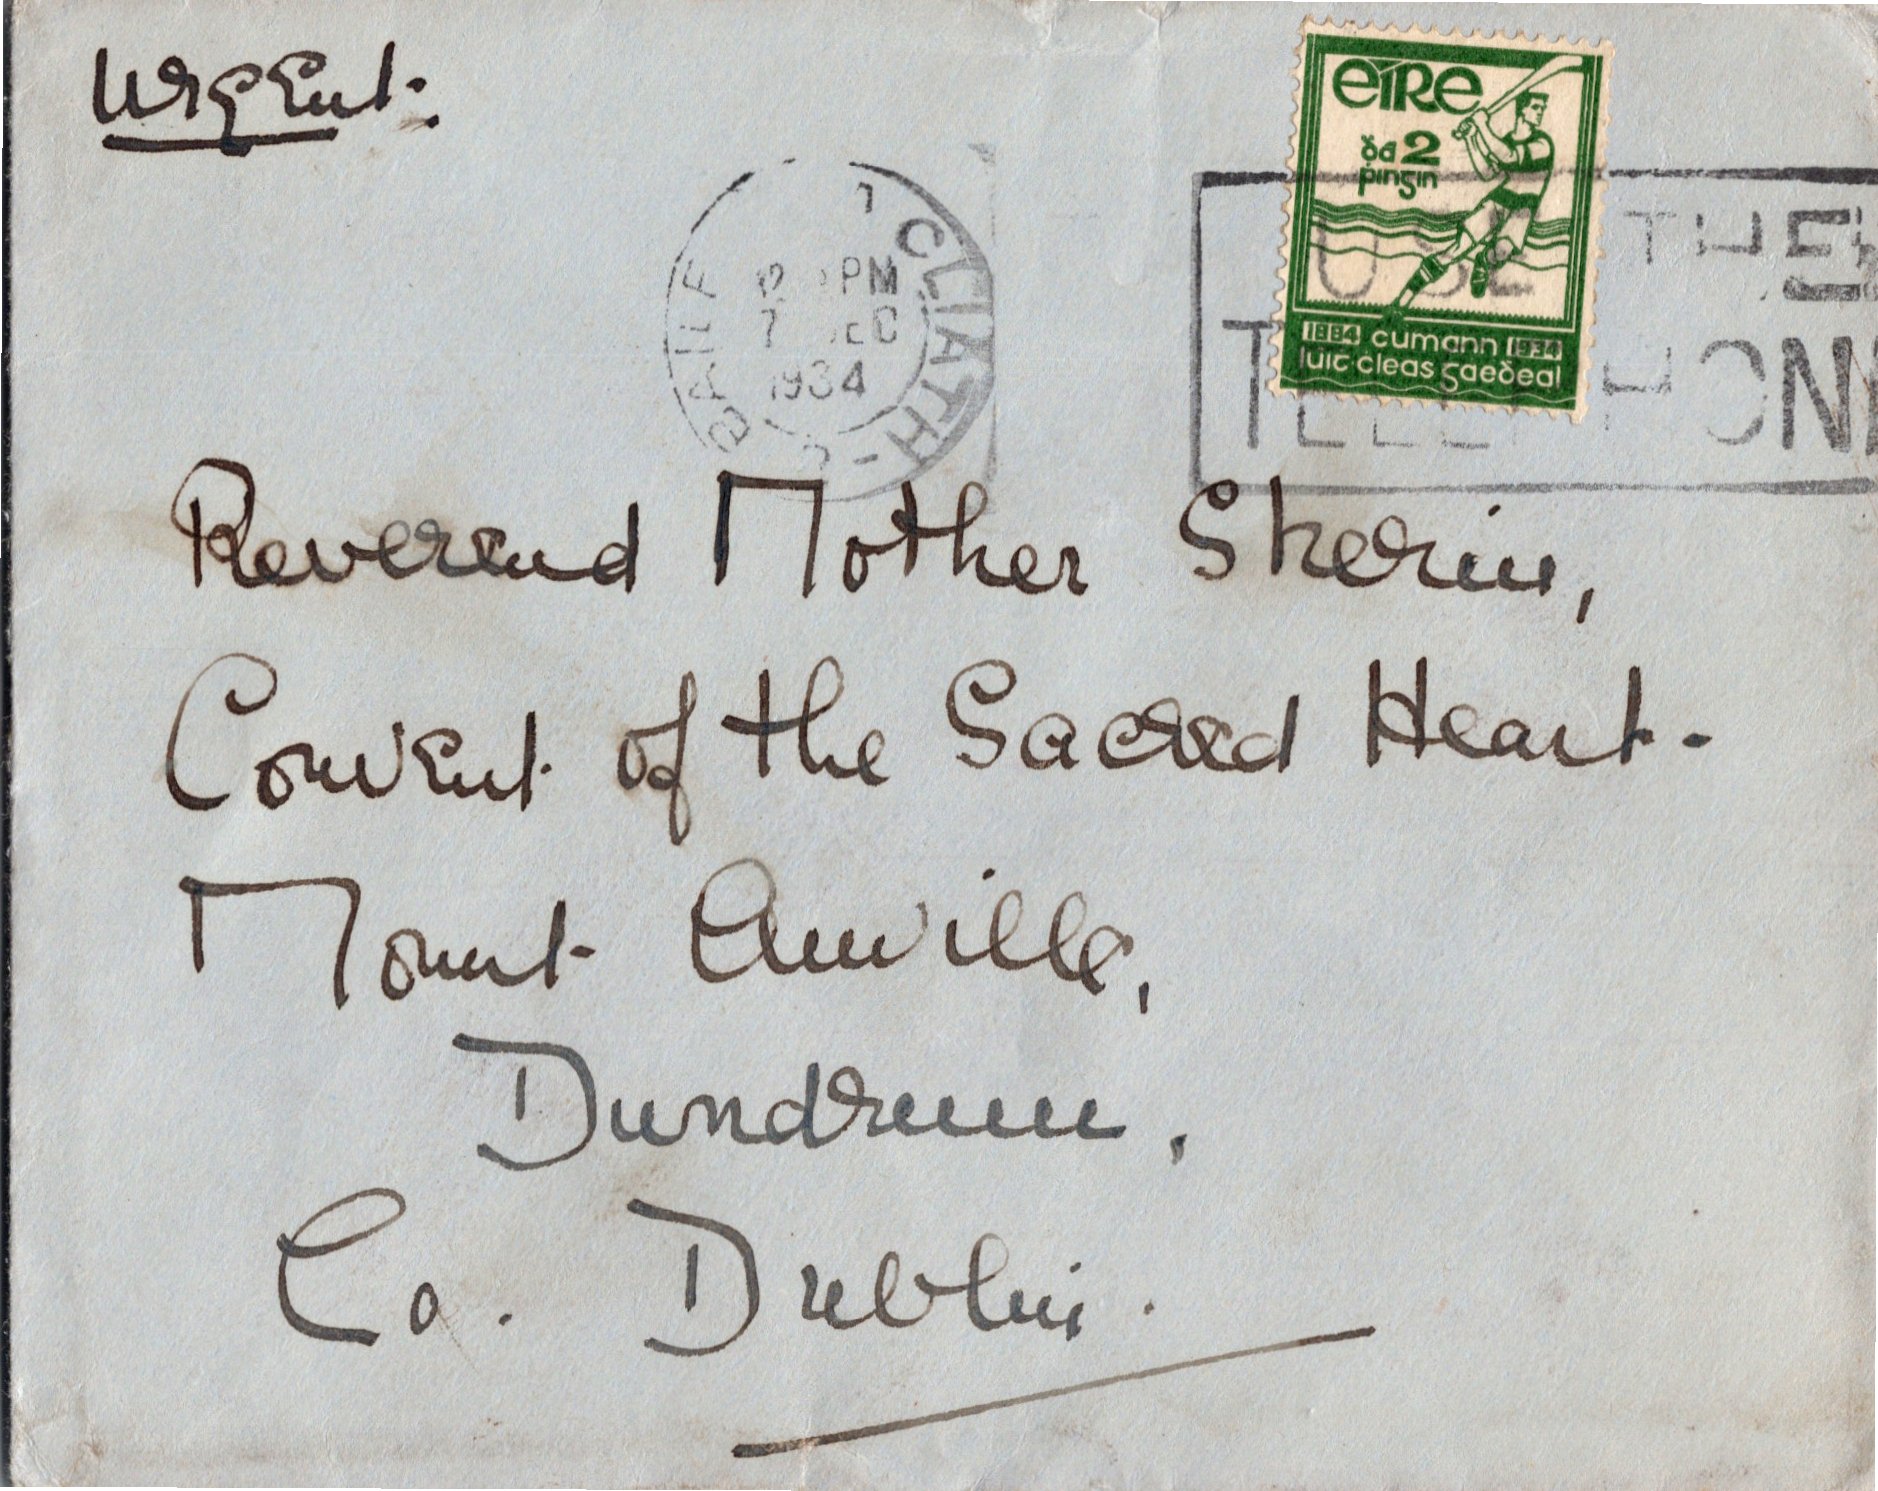 Urgent.
éire
ḋá 2
ṗinġin
1884 cumann 1934
lúiṫċleas gaeḋeal
BAILE ÁTHA CLIATH
PM
7 DEC
1934
USE THE
TELEPHONE
Reverend Mother Skerin,
Convent of the Sacred Heart.
Mount Anville,
Dundrum.
Co. Dublin.